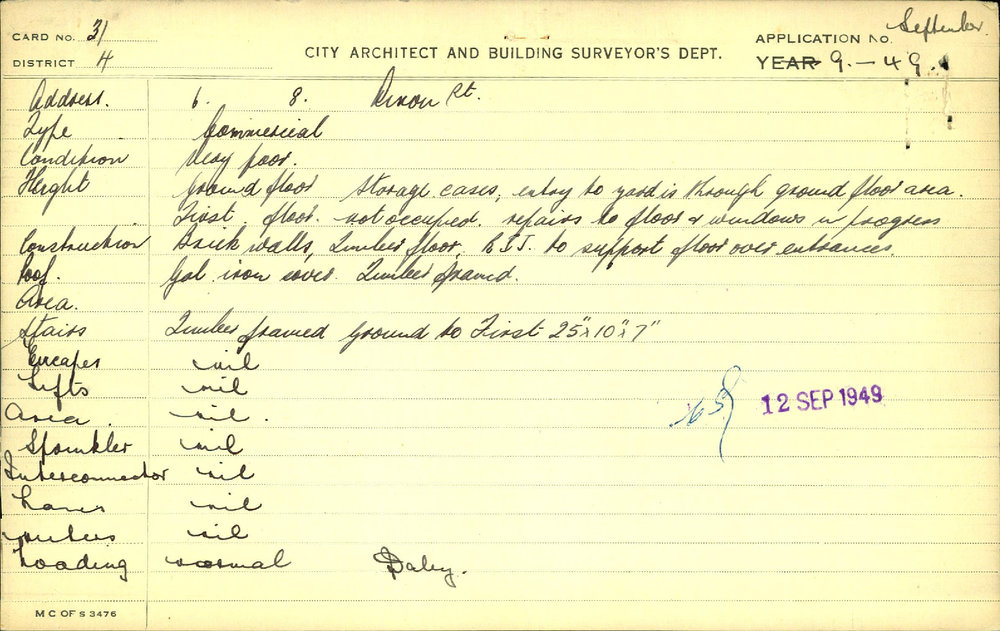 CARD NO. 31
DISTRICT 4
CITY ARCHITECT AND BUILDING SURVEYOR'S DEPT.
APPLICATION NO. September
YEAR 9.-49.
Address. 6. 8. Dixon St.
Type Commerical
Condition Very poor.
Height Ground floor Storage cases, entry to yard is through ground floor area.
First floor. not occupied. repairs to floor & windows in progress
Construction Brick walls, Timber floor, R.S.J. to support floor over entrances.
Roof. Gal. iron cover. Timber framed.
Area.
Stairs Timber framed Ground to First 25"x10"x7"
Escapes nil
Lifts nil
Area. nil.
Sprinkler nil
Interconnector nil
nil
nil
Loading normal Daley.
12 SEP 1949
M C OF S 3476